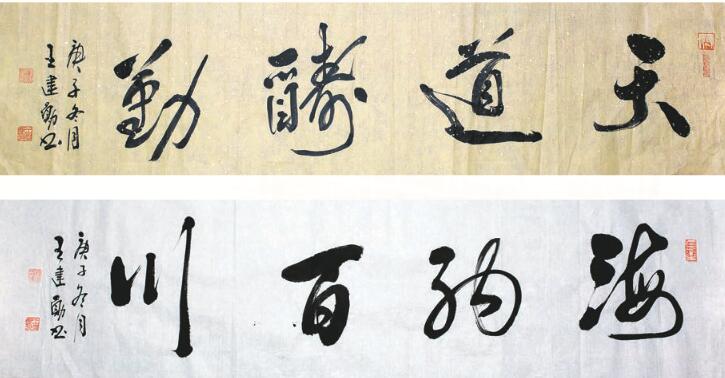 天道酬勤
庚子冬月
王建勛书
海纳百川
庚子冬月
王建勛书